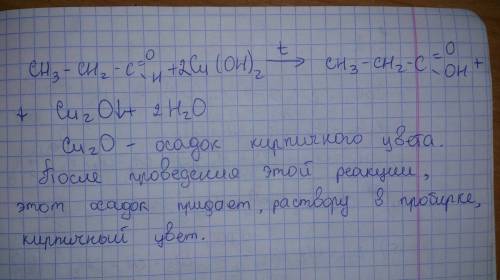 CH₃-CH₂-C=O-H +2Cu(OH)₂ →t CH₃-CH₂-C=O-OH +
+ Cu₂O↓+ 2H₂O
Cu₂O - осадок кирпичного цвета.
После проведения этой реакции,
этот осадок придает, раствору в пробирке,
кирпичный цвет.